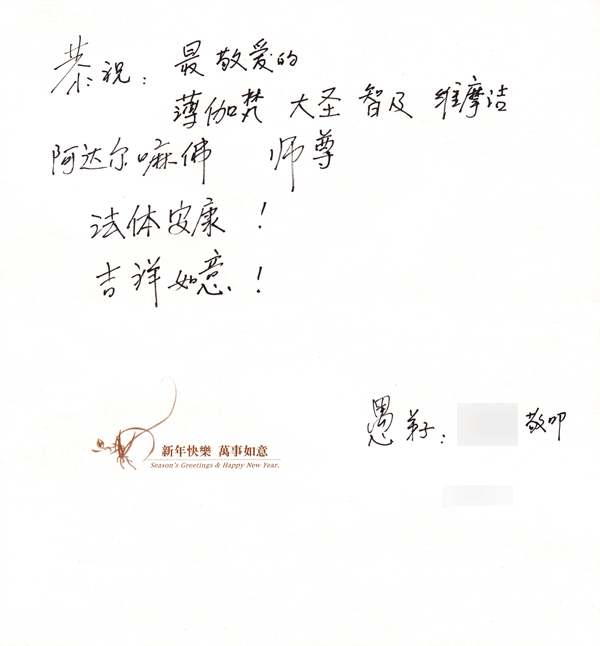 恭祝：最敬爱的
薄伽梵 大圣 智及 维摩洁
阿达尔嘛佛 师尊
法体安康！
吉祥如意！
愚弟子： 敬叩
新年快樂 萬事如意
Season's Greetings & Happy New Year.